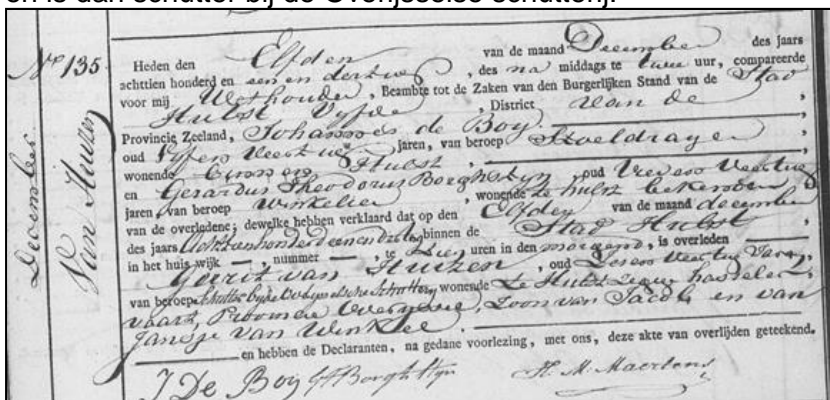 en is dan schutter bij de Overijsselse schutterij.
Nº 135
December
Van Huizen
Heden den Elfden van de maand December des jaars
achttien honderd en een en dertig, des na middags te twee uur, compareerde
voor mij Wethouder, Beambte tot de Zaken van den Burgerlijken Stand van de Stad
Hulst Vijfde, District van de
Provincie Zeeland, Johannes de Boy,
oud Vijf en Veertig jaren, van beroep Stoeldrager,
wonende binnen Hulst,
en Gerardus Theodorus Borghstijn oud Veertig
jaren van beroep Winkelier, wonende te hulst bekenden
van de overledene; dewelke hebben verklaard dat op den Elfden van de maand december
des jaars Achttienhonderdeenendertig binnen de Stad Hulst
in het huis wijk —, nummer —, te uren in den morgend, is overleden
Gerrit van Huizen, oud Veertig Jaren,
van beroep Schutter bij de Overijsselsche Schutterij wonende te Hulst hasselder
vaart, Provincie Overijssel, Zoon van Jacob en van
Jansje van Winkel.
en hebben de Declaranten, na gedane voorlezing, met ons, deze akte van overlijden geteekend.
J De Boy GT Borghstijn H. M. Maertens